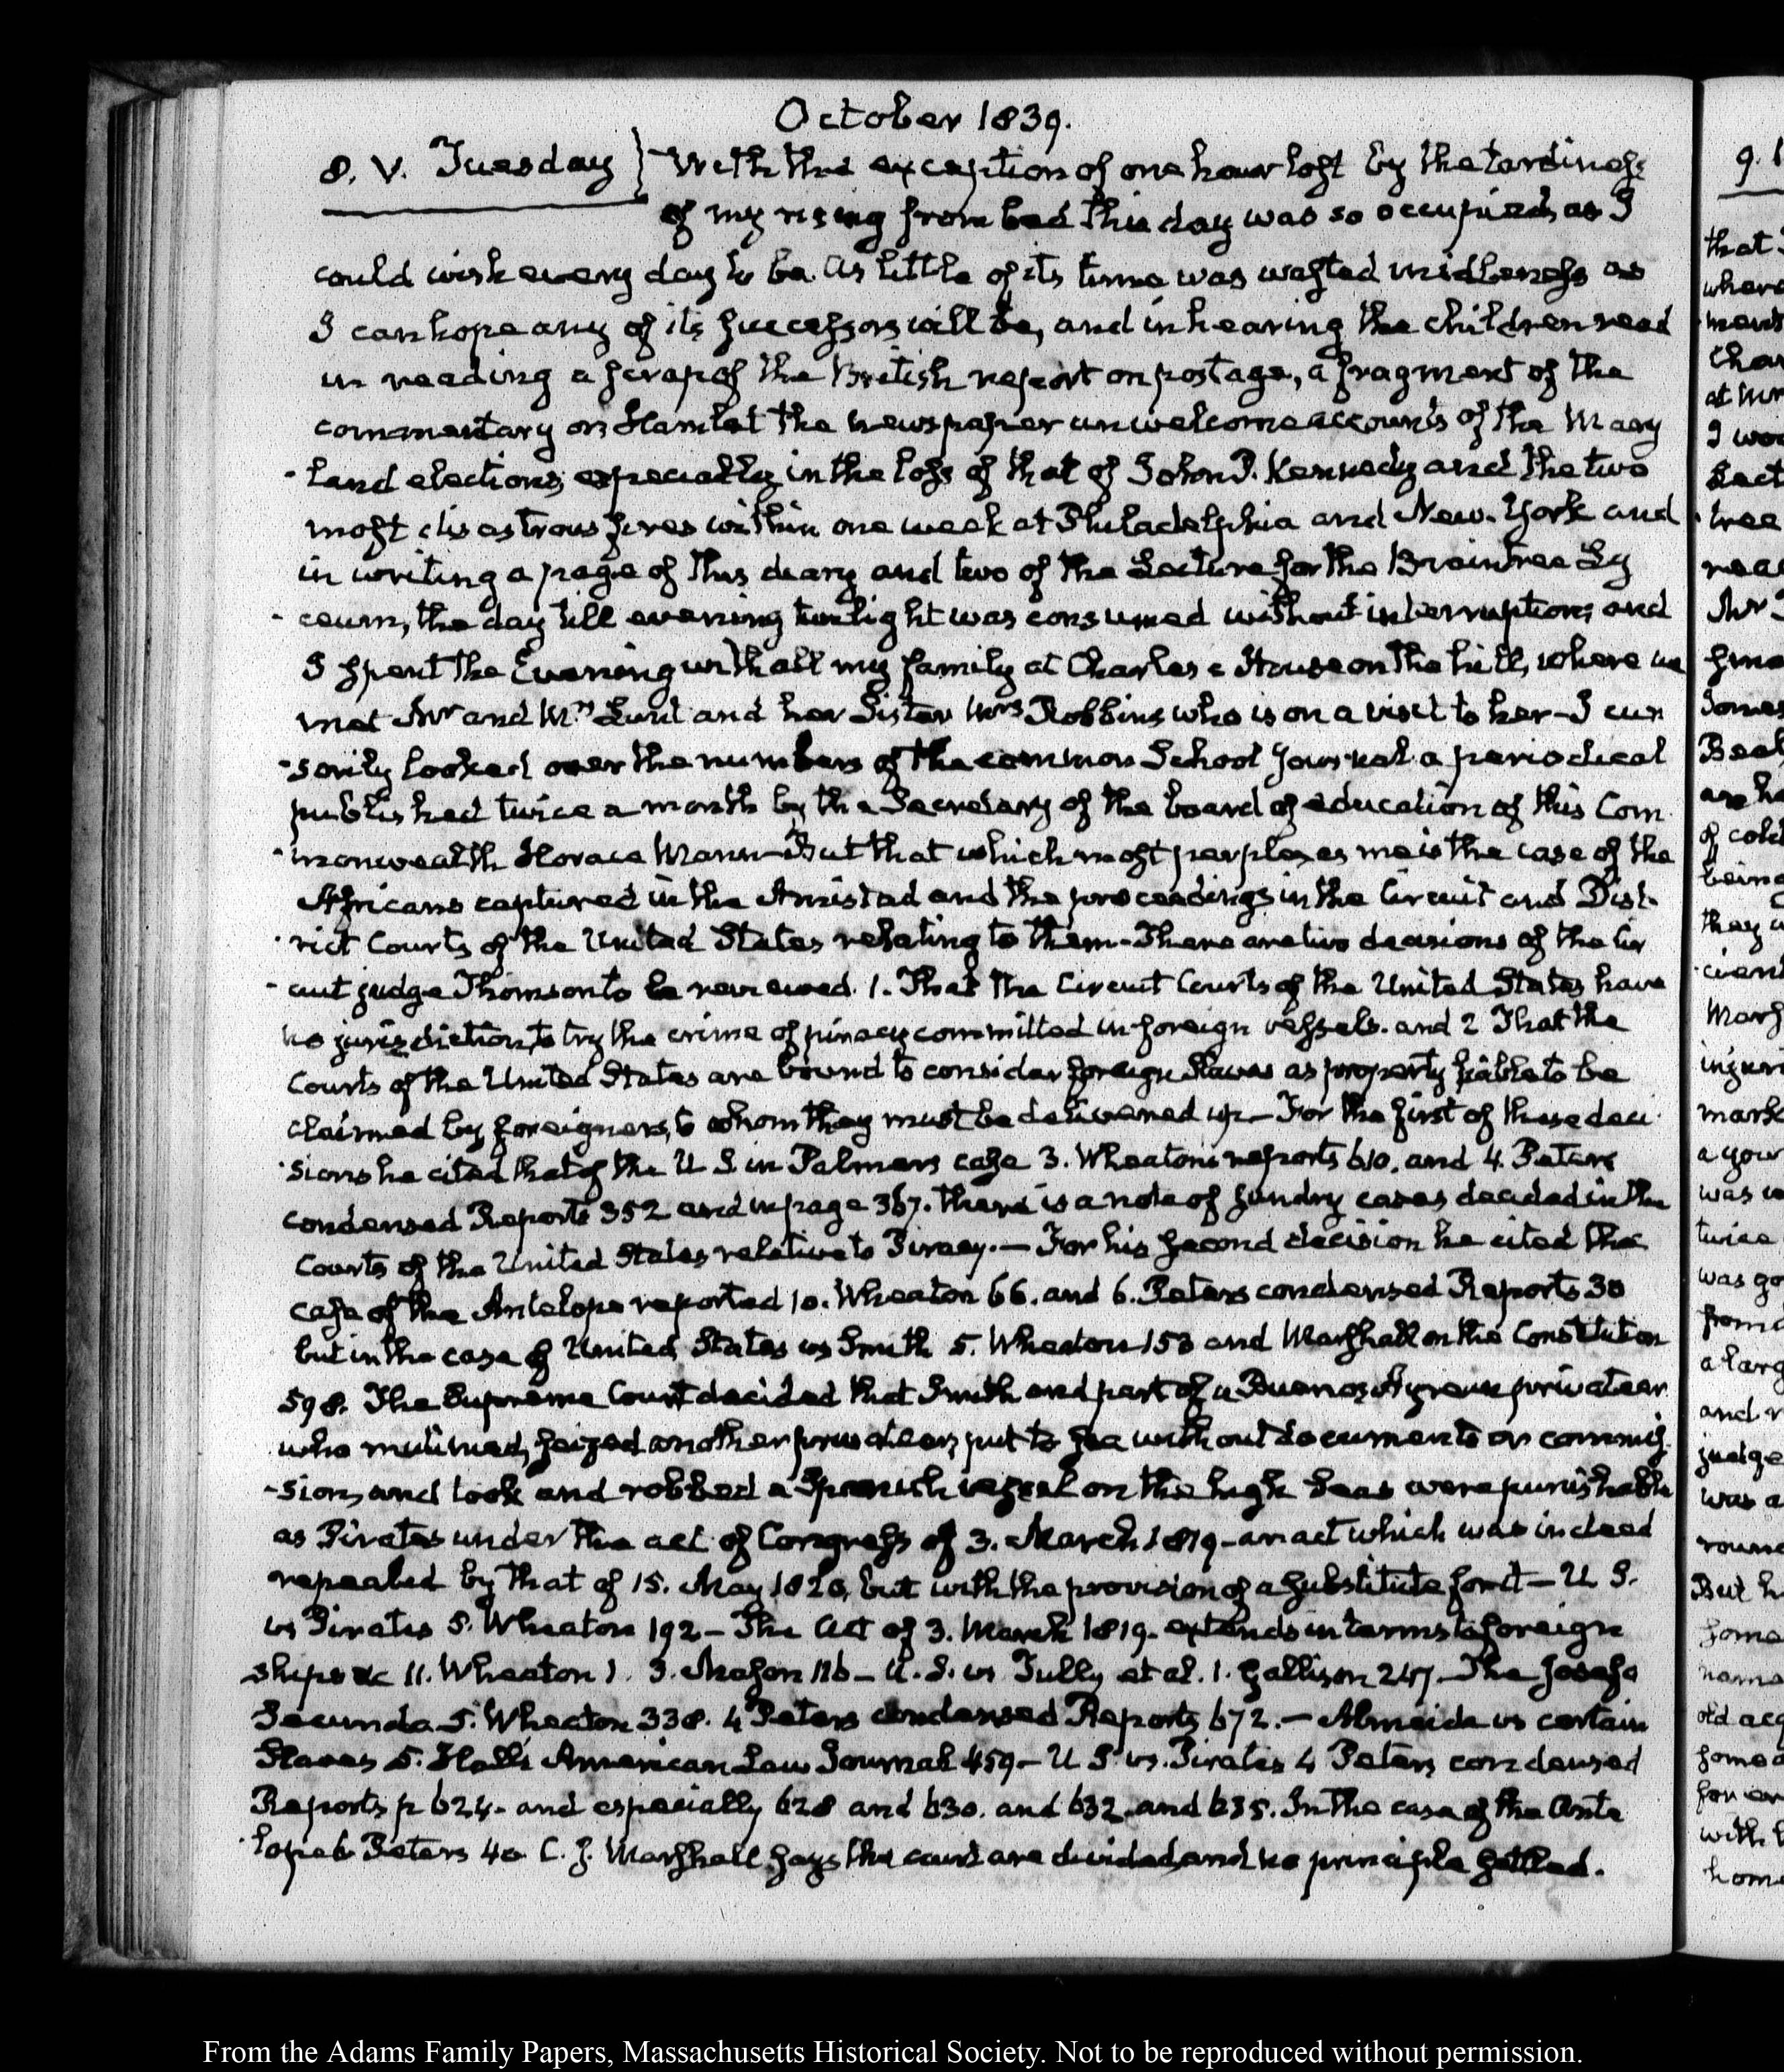 October 1839.
8. V. Tuesday } With the exception of one hour lost by the tardiness
of my rising from bed this day was so occupied, as I
could wish every day to be. As little of its time was wasted in idleness as
I can hope any of its successors will be, and in hearing the children read
in reading a scrap of the British report on postage, a fragment of the
commentary on Hamlet the newspaper unwelcome accounts of the Mary
-land elections, especially in the loss of that of John P. Kennedy and the two
most disastrous fires within one week at Philadelphia and New-York and
in writing a page of this diary and two of the Lecture for the Braintree Ly
-ceum, the day till evening twilight was consumed without interruption; and
I spent the Evening with all my family at Charles's House on the hill, where we
met Mr and Mrs Lunt and her Sister Mrs Robbins who is on a visit to her—I cur
-sorily looked over the numbers of the common School Journal a periodical
published twice a month by the Secretary of the board of education of this Com
-monwealth Horace Mann—But that which most perplexes me is the case of the
Africans captured in the Amistad and the proceedings in the Circuit and Dist-
-rict Courts of the United States relating to them—There are two decisions of the Cir
-cuit judge Thomson to be reviewed. 1. That the Circuit Courts of the United States have
no jurisdiction, to try the crime of piracy committed in foreign vessels. and 2 That the
Courts of the United States are bound to consider foreign Slaves as property liable to be
claimed by foreigners, to whom they must be delivered up—For the first of these deci
-sions he cited that of the U S. in Palmers case 3. Wheatons reports 610. and 4. Peters
condensed Reports 352 and in page 367. there is a note of sundry cases decided in the
Courts of the United States relative to Piracy.—For his second decision he cited the
case of the Antelope reported 10. Wheaton 66. and 6. Peters condensed Reports 30
but in the case of United States vs Smith 5. Wheaton 153 and Marshall on the Constitution
598. The Supreme Court decided that Smith and part of a Buenos Ayrean privateer
who mutinied, seized another privateer, put to sea without documents or commis
-sion, and took and robbed a Spanish vessel on the high Seas were punishable
as Pirates under the act of Congress of 3. March 1819—an act which was indeed
repealed by that of 15. May 1820, but with the provision of a substitute for it—U S.
vs Pirates 5. Wheaton 192—The Act of 3. March 1819. extends in terms to foreign
ships &c 11. Wheaton 1. 3. Mason 116—U. S. vs Tully et al. 1. Gallison 247. The Josefa
Secunda 5. Wheaton 338. 4 Peters condensed Reports 672.—Almeida vs certain
Slaves 5. Hall's American Law Journal 459—U S vs. Pirates 4 Peters condensed
Reports p 624. and especially 628 and 630. and 632. and 635. In the case of the Ante
-lope 6 Peters 40 C. J. Marshall says the court are divided, and no principle settled.
From the Adams Family Papers, Massachusetts Historical Society. Not to be reproduced without permission.